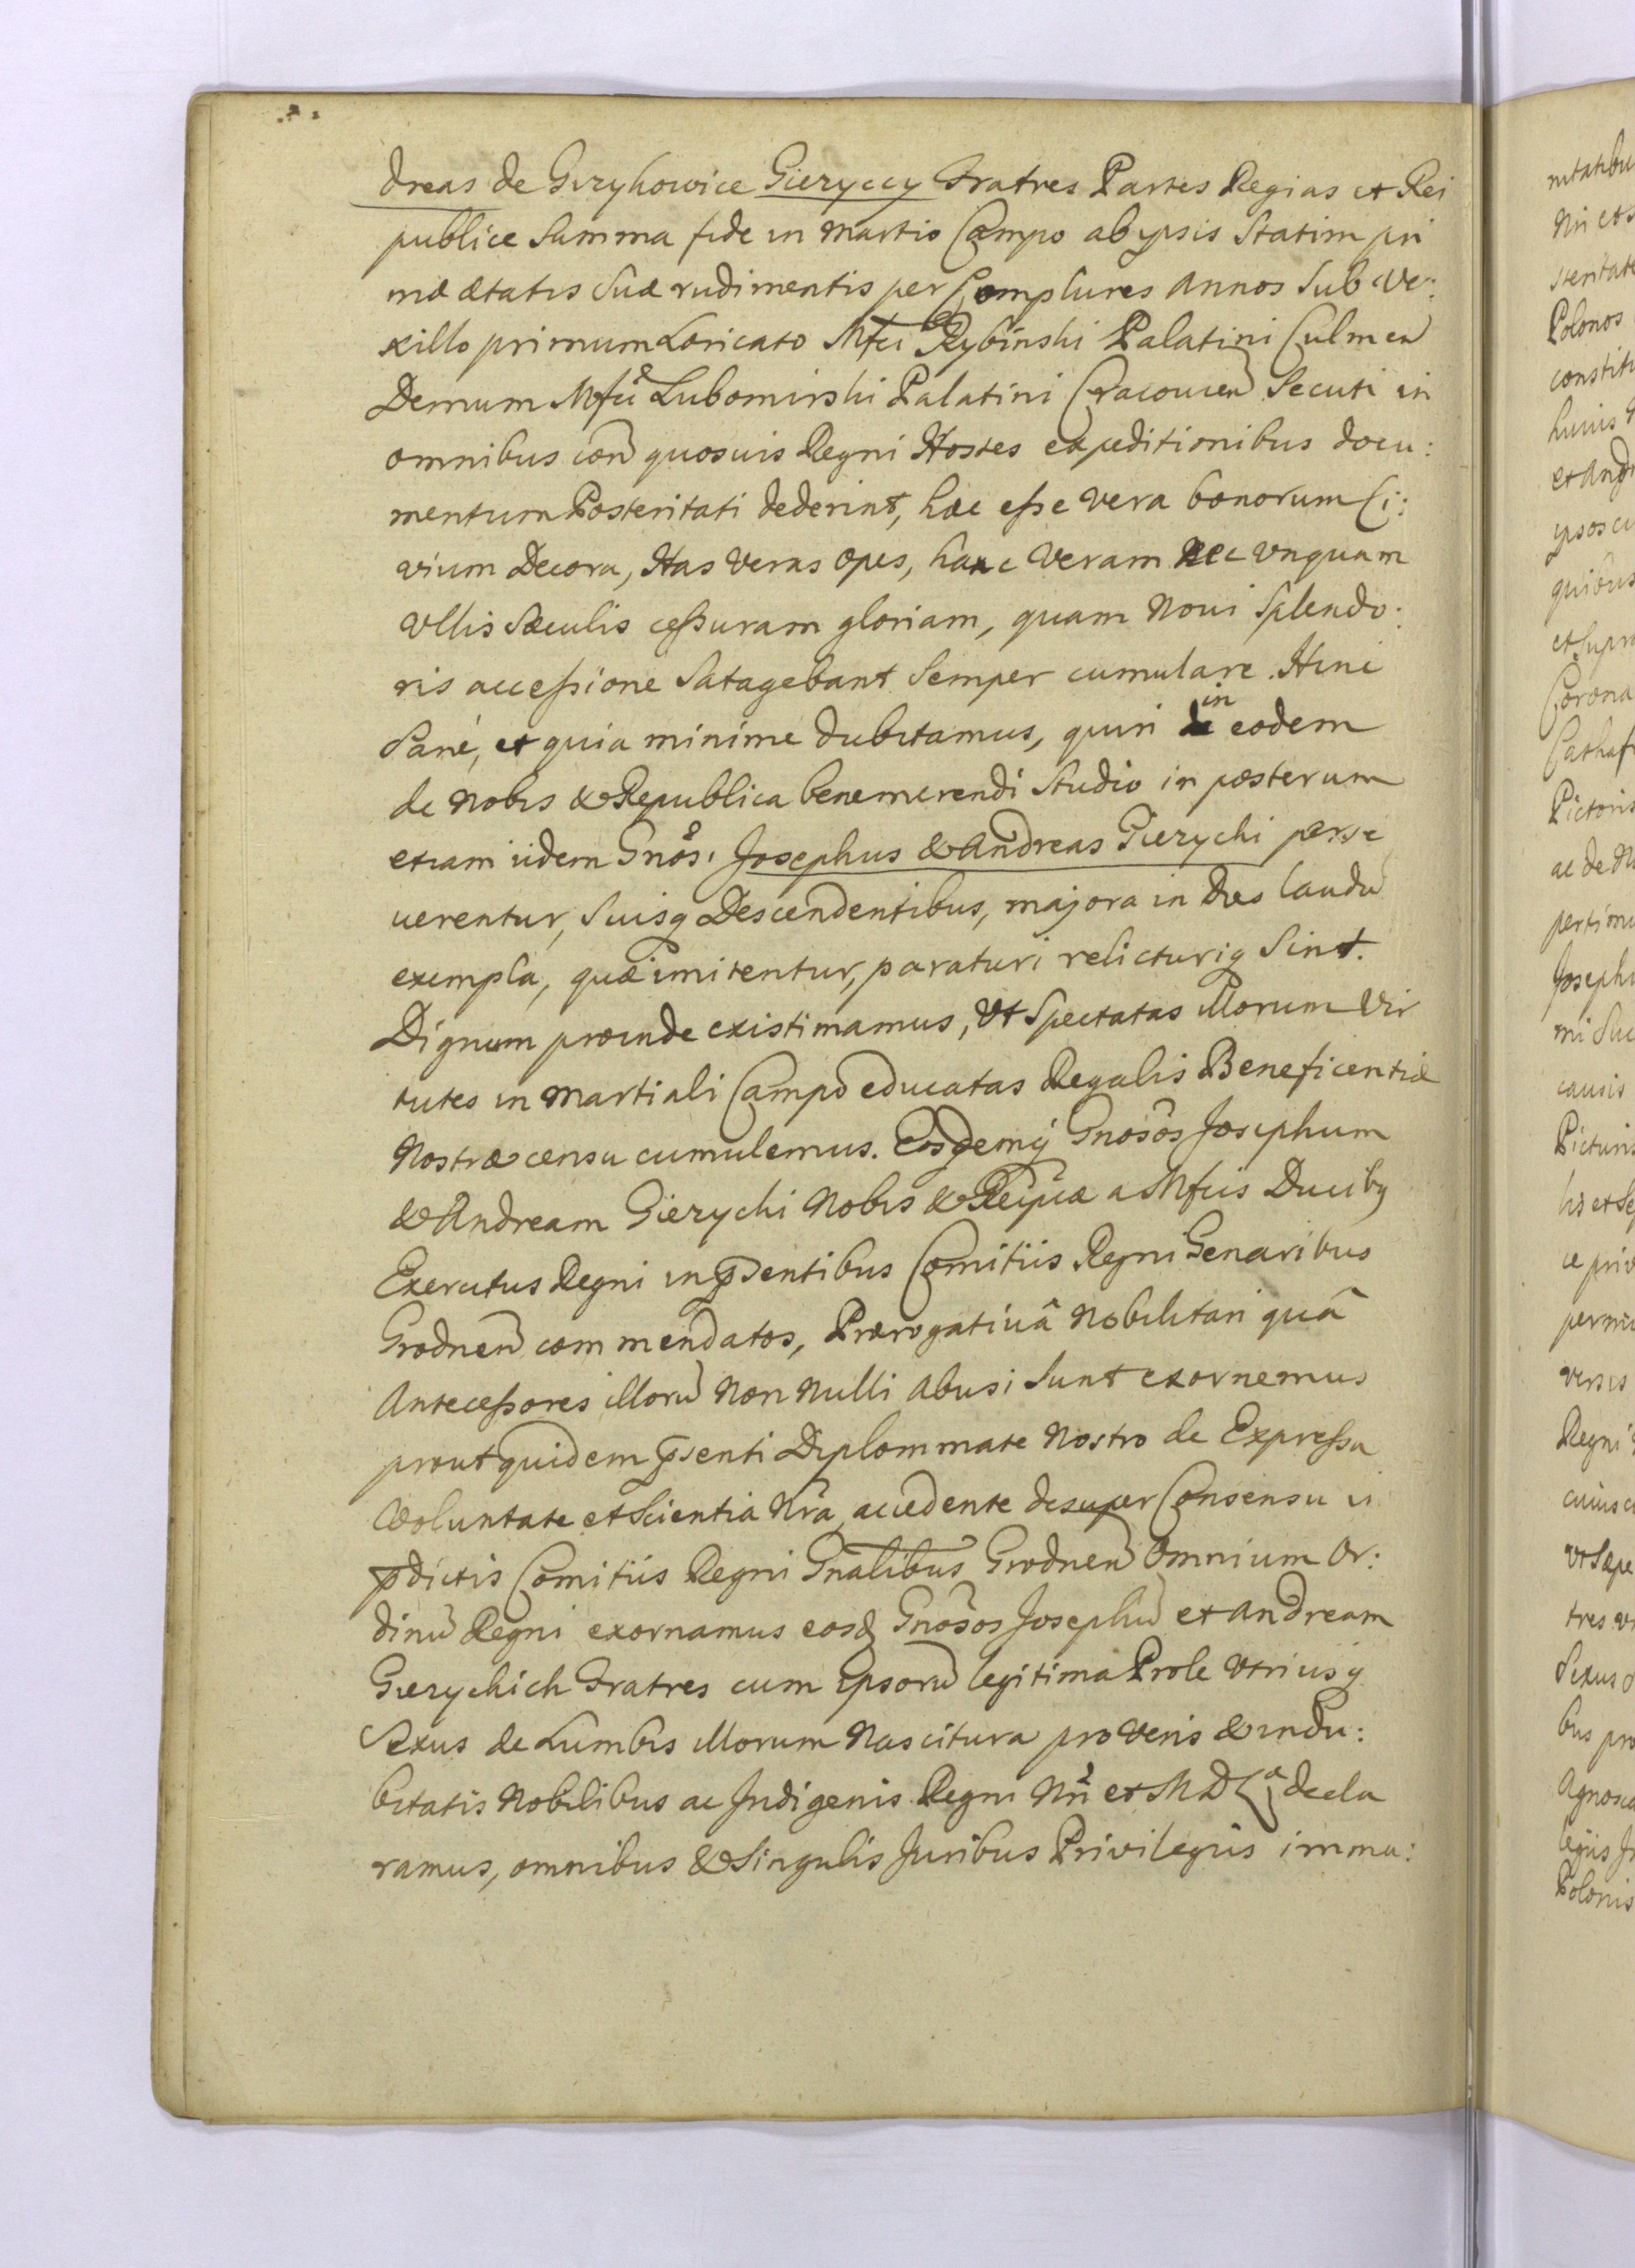 dreas de Girzykowice Gieryccy Fratres Partes Regias et Rei
publice Summa fide in Martio Campo ab ipsis Statim pri
mæ ætatis Suæ rudimentis per Complures Annos Sub Ve:
xillo primum Loricato Mfci Rybinski Palatini Culmen
Demum Mfci Lubomirski Palatini Cracovien Secuti in
omnibus con quosuis Regni Hostes expeditionibus docu:
mentum Posteritati dederint, hæc eſse vera bonorum Ci:
vium Decora, Has Veras opes, hanc Veram Nec Unquam
Ullis Sæculis ceſsuram gloriam, quam Noui Splendo:
ris acceſsione Satagebant Semper cumulare. Hinc
Sané, et quia minime dubitamus, quin in eodem
de Nobis & Republica benemerendi Studio in posterum
etiam iidem Gnosi Josephus & Andreas Gierychi perse
uerentur, Suisq Descendentibus, majora in Dies laudu
exempla, quæ imitentur, paraturi relicturiq Sint.
Dignum proinde existimamus, Ut Spectatas Illorum Vir
tutes in Martiali Campo educatas Regalis Beneficentiæ
Nostræ censu cumulemus. Eosdemq Gnosos Josephum
& Andream Gierychi Nobis & Reipcæ a Mfcis Ducibq
Exercitus Regni in pñsentibus Comitiis Regni Genaribus
Grodnen commendatos, Prærogativâ Nobilitari quâ
Anteceſsores illoru Non Nulli Abusi Sunt exornemus
prout quidem pñsenti Diplommate Nostro de Expreſsa
Voluntate et Scientia Nra, accedente desuper Consensu in
pdictis Comitiis Regni Gnalibus Grodnen Omnium Or:
dinu Regni exornamus eosd Gnosos Josephu et Andream
Gierychich Fratres cum Ipsoru legitima Prole Utriusq
Sexus de Lumbis Illorum Nascitura pro Veris & indu:
bitatis Nobilibus ac Indigenis Regni Nri et M D L decla
ramus, omnibus & Singulis Juribus Privilegiis immu:
Polonos
Regni
Polonis